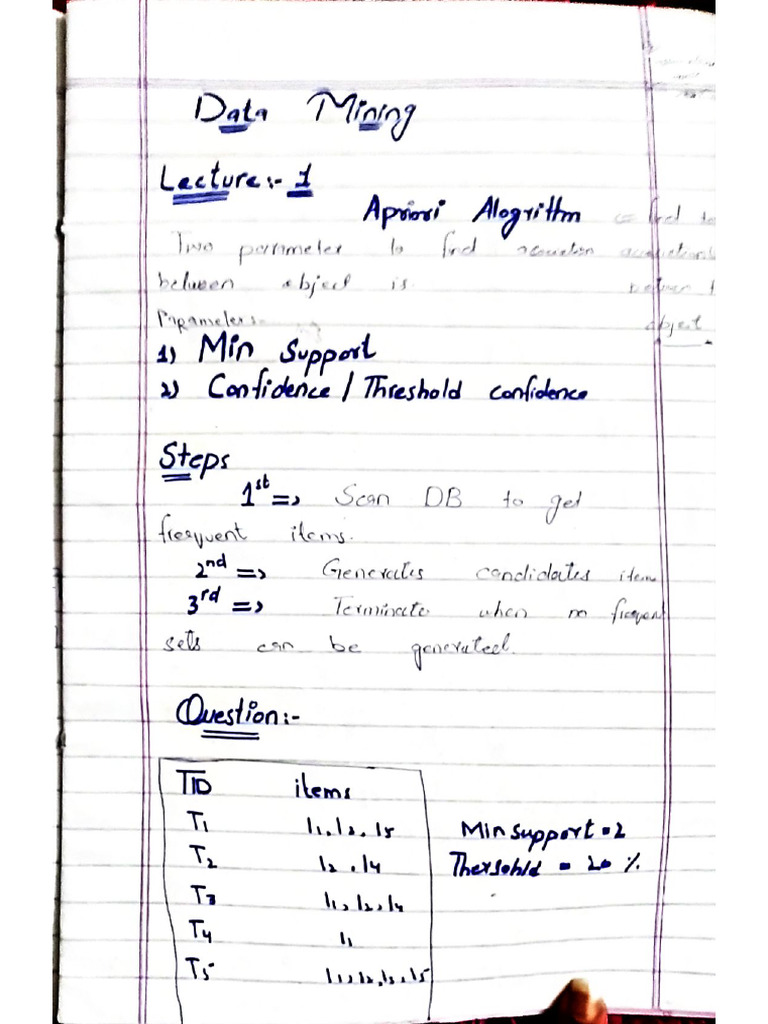 Data Mining
Lecture:- 1
Apriori Alogrithm <= find to
Two parameter to find
between object is between
Parameters:- object
1) Min Support
2) Confidence / Threshold confidence
Steps
1st => Scan DB to get
frequent items.
2nd => Generates candidates item
3rd => Terminate when no frequen
sets can be generated.
Question:-
TID items
T1 I1, I2, I5
T2 I2, I4
T3 I1, I2, I4
T4 I1
T5 I1, I2, I3, I5
Min support = 2
Thersohld = 20 %